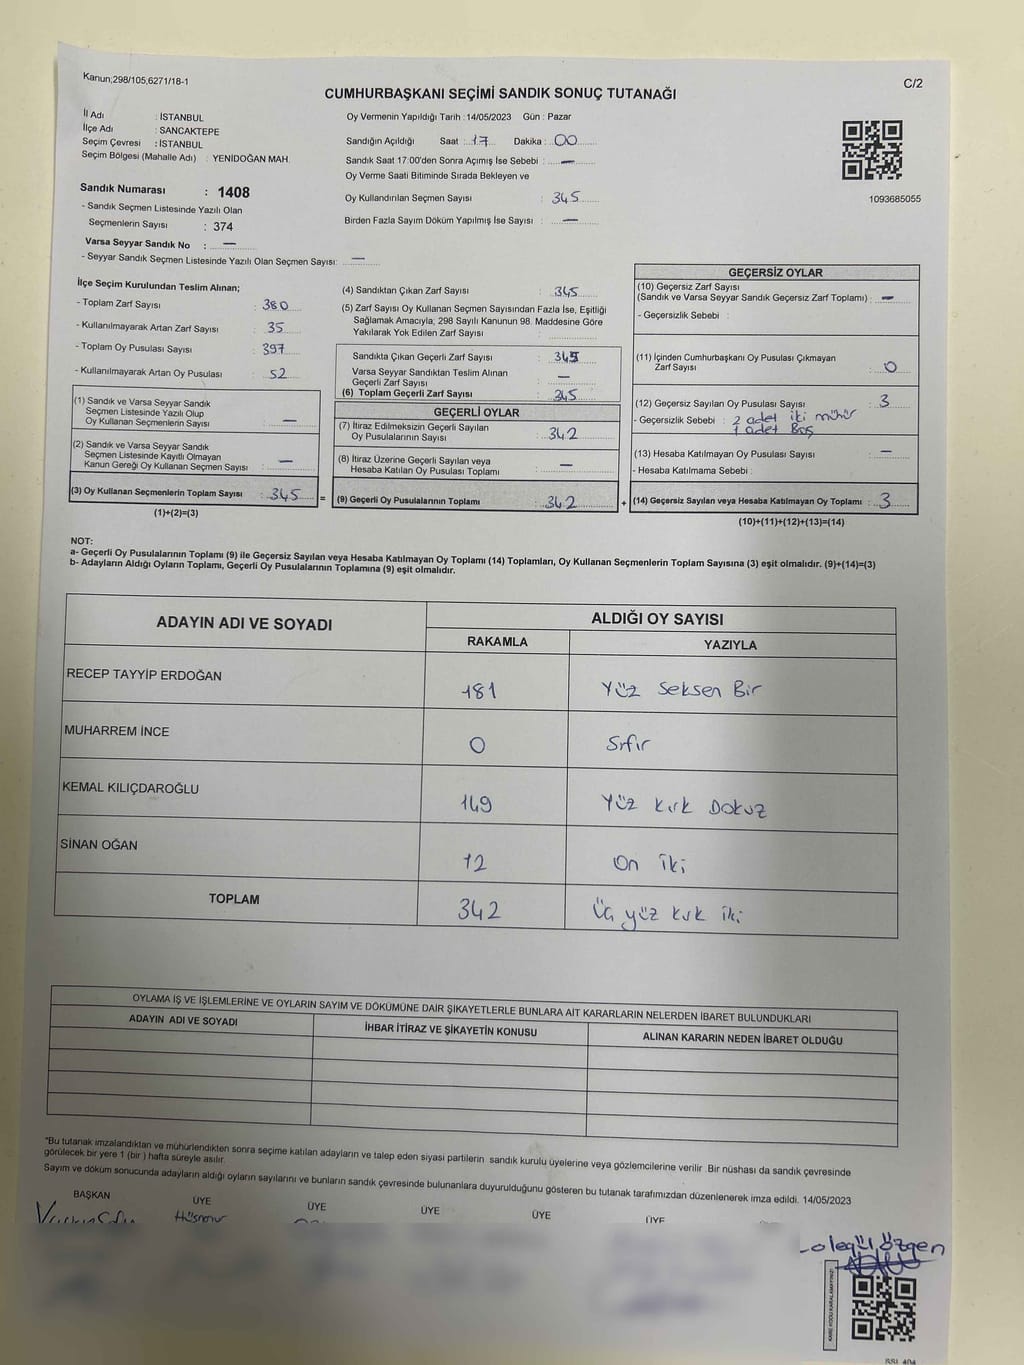 Kanun;298/105,6271/18-1
C/2
CUMHURBAŞKANI SEÇİMİ SANDIK SONUÇ TUTANAĞI
İl Adı : İSTANBUL
İlçe Adı : SANCAKTEPE
Seçim Çevresi : İSTANBUL
Seçim Bölgesi (Mahalle Adı) : YENİDOĞAN MAH.
Sandık Numarası : 1408
- Sandık Seçmen Listesinde Yazılı Olan
Seçmenlerin Sayısı : 374
Varsa Seyyar Sandık No : —
- Seyyar Sandık Seçmen Listesinde Yazılı Olan Seçmen Sayısı: —
Oy Vermenin Yapıldığı Tarih :14/05/2023 Gün : Pazar
Sandığın Açıldığı Saat :17 Dakika :00
Sandık Saat 17:00'den Sonra Açımış İse Sebebi : —
Oy Verme Saati Bitiminde Sırada Bekleyen ve
Oy Kullandırılan Seçmen Sayısı : 345
Birden Fazla Sayım Döküm Yapılmış İse Sayısı : —
1093685055
İlçe Seçim Kurulundan Teslim Alınan;
- Toplam Zarf Sayısı : 380
- Kullanılmayarak Artan Zarf Sayısı : 35
- Toplam Oy Pusulası Sayısı : 397
- Kullanılmayarak Artan Oy Pusulası : 52
(1) Sandık ve Varsa Seyyar Sandık
Seçmen Listesinde Yazılı Olup
Oy Kullanan Seçmenlerin Sayısı : —
(2) Sandık ve Varsa Seyyar Sandık
Seçmen Listesinde Kayıtlı Olmayan
Kanun Gereği Oy Kullanan Seçmen Sayısı : —
(3) Oy Kullanan Seçmenlerin Toplam Sayısı : 345 =
(1)+(2)=(3)
(4) Sandıktan Çıkan Zarf Sayısı : 345
(5) Zarf Sayısı Oy Kullanan Seçmen Sayısından Fazla İse, Eşitliği
Sağlamak Amacıyla, 298 Sayılı Kanunun 98. Maddesine Göre
Yakılarak Yok Edilen Zarf Sayısı :
Sandıkta Çıkan Geçerli Zarf Sayısı : 345
Varsa Seyyar Sandıktan Teslim Alınan
Geçerli Zarf Sayısı : —
(6) Toplam Geçerli Zarf Sayısı : 345
GEÇERLİ OYLAR
(7) İtiraz Edilmeksizin Geçerli Sayılan
Oy Pusulalarının Sayısı : 342
(8) İtiraz Üzerine Geçerli Sayılan veya
Hesaba Katılan Oy Pusulası Toplamı : —
(9) Geçerli Oy Pusulalarının Toplamı : 342 +
GEÇERSİZ OYLAR
(10) Geçersiz Zarf Sayısı
(Sandık ve Varsa Seyyar Sandık Geçersiz Zarf Toplamı) : —
- Geçersizlik Sebebi :
(11) İçinden Cumhurbaşkanı Oy Pusulası Çıkmayan
Zarf Sayısı : 0
(12) Geçersiz Sayılan Oy Pusulası Sayısı : 3
- Geçersizlik Sebebi : 2 adet iki mühür
1 adet Boş
(13) Hesaba Katılmayan Oy Pusulası Sayısı : —
- Hesaba Katılmama Sebebi :
(14) Geçersiz Sayılan veya Hesaba Katılmayan Oy Toplamı : 3
(10)+(11)+(12)+(13)=(14)
NOT:
a- Geçerli Oy Pusulalarının Toplamı (9) ile Geçersiz Sayılan veya Hesaba Katılmayan Oy Toplamı (14) Toplamları, Oy Kullanan Seçmenlerin Toplam Sayısına (3) eşit olmalıdır. (9)+(14)=(3)
b- Adayların Aldığı Oyların Toplamı, Geçerli Oy Pusulalarının Toplamına (9) eşit olmalıdır.
ADAYIN ADI VE SOYADI
ALDIĞI OY SAYISI
RAKAMLA YAZIYLA
RECEP TAYYİP ERDOĞAN 181 Yüz Seksen Bir
MUHARREM İNCE 0 Sıfır
KEMAL KILIÇDAROĞLU 149 Yüz Kırk Dokuz
SİNAN OĞAN 12 On iki
TOPLAM 342 Üç yüz kırk iki
OYLAMA İŞ VE İŞLEMLERİNE VE OYLARIN SAYIM VE DÖKÜMÜNE DAİR ŞİKAYETLERLE BUNLARA AİT KARARLARIN NELERDEN İBARET BULUNDUKLARI
ADAYIN ADI VE SOYADI
İHBAR İTİRAZ VE ŞİKAYETİN KONUSU
ALINAN KARARIN NEDEN İBARET OLDUĞU
*Bu tutanak imzalandıktan ve mühürlendikten sonra seçime katılan adayların ve talep eden siyasi partilerin sandık kurulu üyelerine veya gözlemcilerine verilir. Bir nüshası da sandık çevresinde
görülecek bir yere 1 (bir) hafta süreyle asılır.
Sayım ve döküm sonucunda adayların aldığı oyların sayılarını ve bunların sandık çevresinde bulunanlara duyurulduğunu gösteren bu tutanak tarafımızdan düzenlenerek imza edildi. 14/05/2023
BAŞKAN ÜYE ÜYE ÜYE ÜYE ÜYE
Hüsnonur
Özgen
KARE KODU KARALAMAYINIZ!